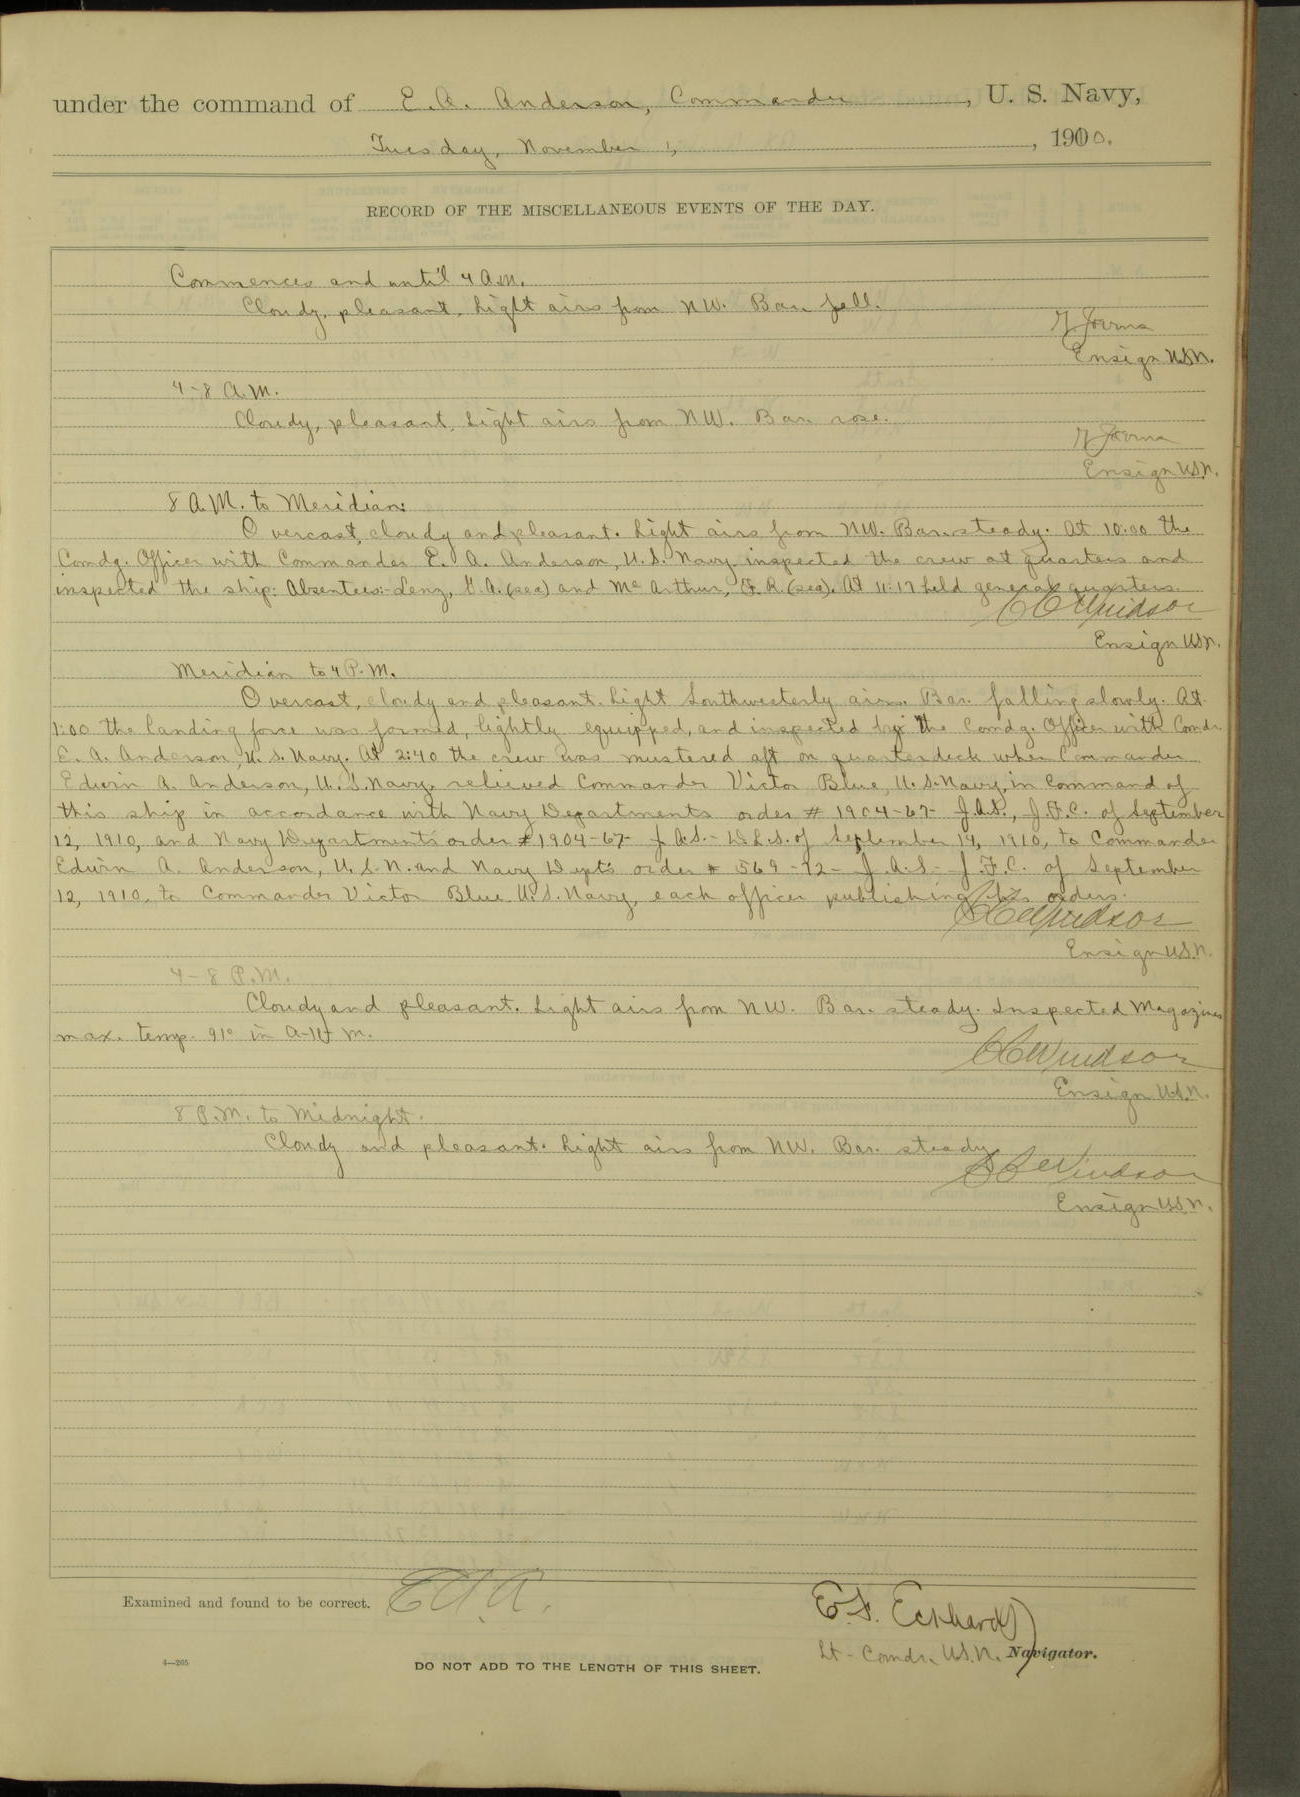 under the command of E. A. Anderson, Commander, U. S. Navy,
Tuesday, November 1, 1910.
RECORD OF THE MISCELLANEOUS EVENTS OF THE DAY.
Commences and until 4 A.M.
Cloudy, pleasant, light airs from NW. Bar. fell.
Ensign U.S.N.
4-8 A.M.
Cloudy, pleasant, light airs from NW. Bar. rose.
Ensign U.S.N.
8 A.M. to Meridian:
Overcast, cloudy and pleasant. Light airs from NW. Bar. steady. At 10:00 the
Comdg. Officer with Commander E. A. Anderson, U.S. Navy inspected the crew at quarters and
inspected the ship: Absentees:- Lenz, (sea) and McArthur, F.R. (sea). At 11:17 held general quarters.
C C Windsor
Ensign U.S.N.
Meridian to 4 P.M.
Overcast, cloudy and pleasant. Light Southwesterly airs. Bar. falling slowly. At
1:00 the landing force was formed, lightly equipped, and inspected by the Comdg. Officer with Comdr.
E. A. Anderson, U. S. Navy. At 2:40 the crew was mustered aft on quarterdeck when Commander
Edwin A. Anderson, U. S. Navy, relieved Commander Victor Blue, U. S. Navy, in command of
this ship in accordance with Navy Departments order # 1904-67- J.A.S., J.F.C. of September
12, 1910, and Navy Department's order # 1904-67- J.A.S.- D.L.S. of September 14, 1910, to Commander
Edwin A. Anderson, U. S. N. and Navy Dept's order # 569-72- J.A.S- J.F.C. of September
12, 1910, to Commander Victor Blue U.S. Navy, each officer publishing his orders.
C C Windsor
Ensign U.S.N.
4-8 P.M.
Cloudy and pleasant. Light airs from NW. Bar. steady. Inspected Magazines
max. temp. 91° in M.
C C Windsor
Ensign U.S.N.
8 P.M. to Midnight.
Cloudy and pleasant. Light airs from NW. Bar. steady
C C Windsor
Ensign U.S.N.
Examined and found to be correct. E A. A.
E. F. Eckhardt
Lt-Comdr. U.S.N. Navigator.
4—205
DO NOT ADD TO THE LENGTH OF THIS SHEET.